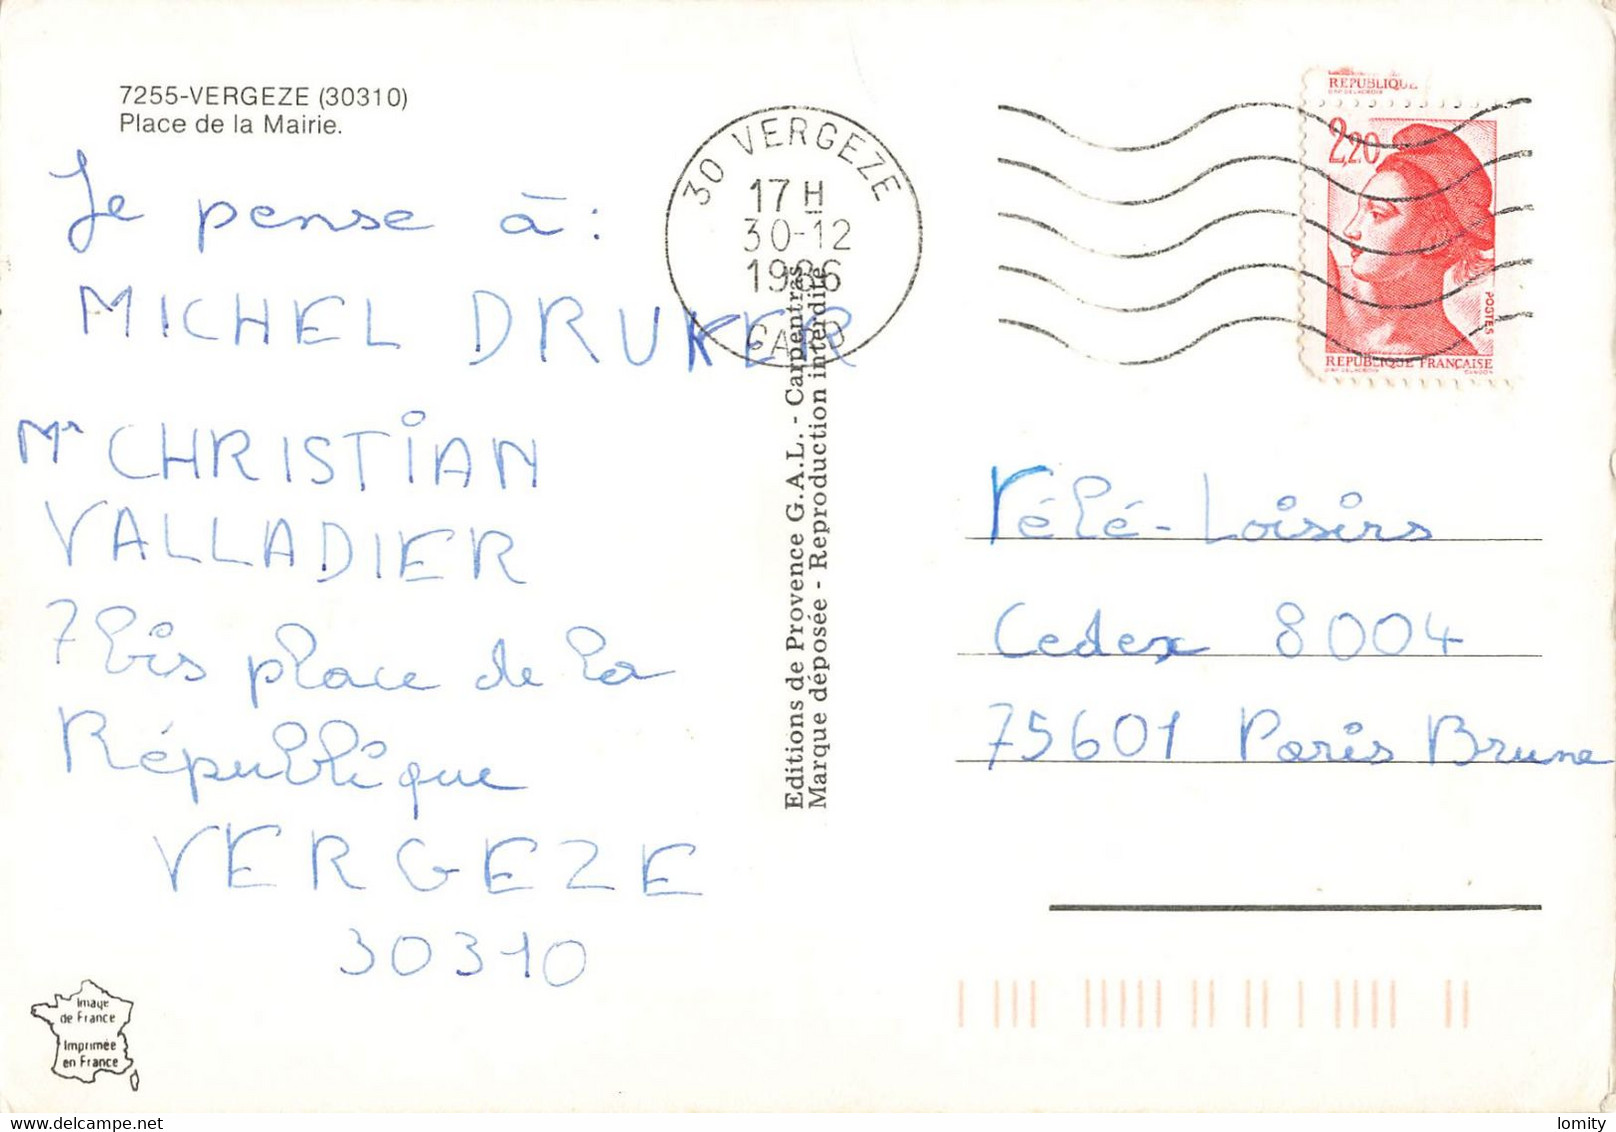 7255-VERGEZE (30310)
Place de la Mairie.
Je pense à :
MICHEL DRUKER
Mr CHRISTIAN
VALLADIER
7 bis place de la
République
VERGEZE
30310
Image
de France
Imprimée
en France
30 VERGEZE
17 H
30-12
1986
GARD
Editions de Provence G.A.L. - Carpentras
Marque déposée - Reproduction interdite
REPUBLIQUE
2,20
POSTES
REPUBLIQUE FRANÇAISE
Télé-Loisirs
Cedex 8004
75601 Paris Brune
lomity